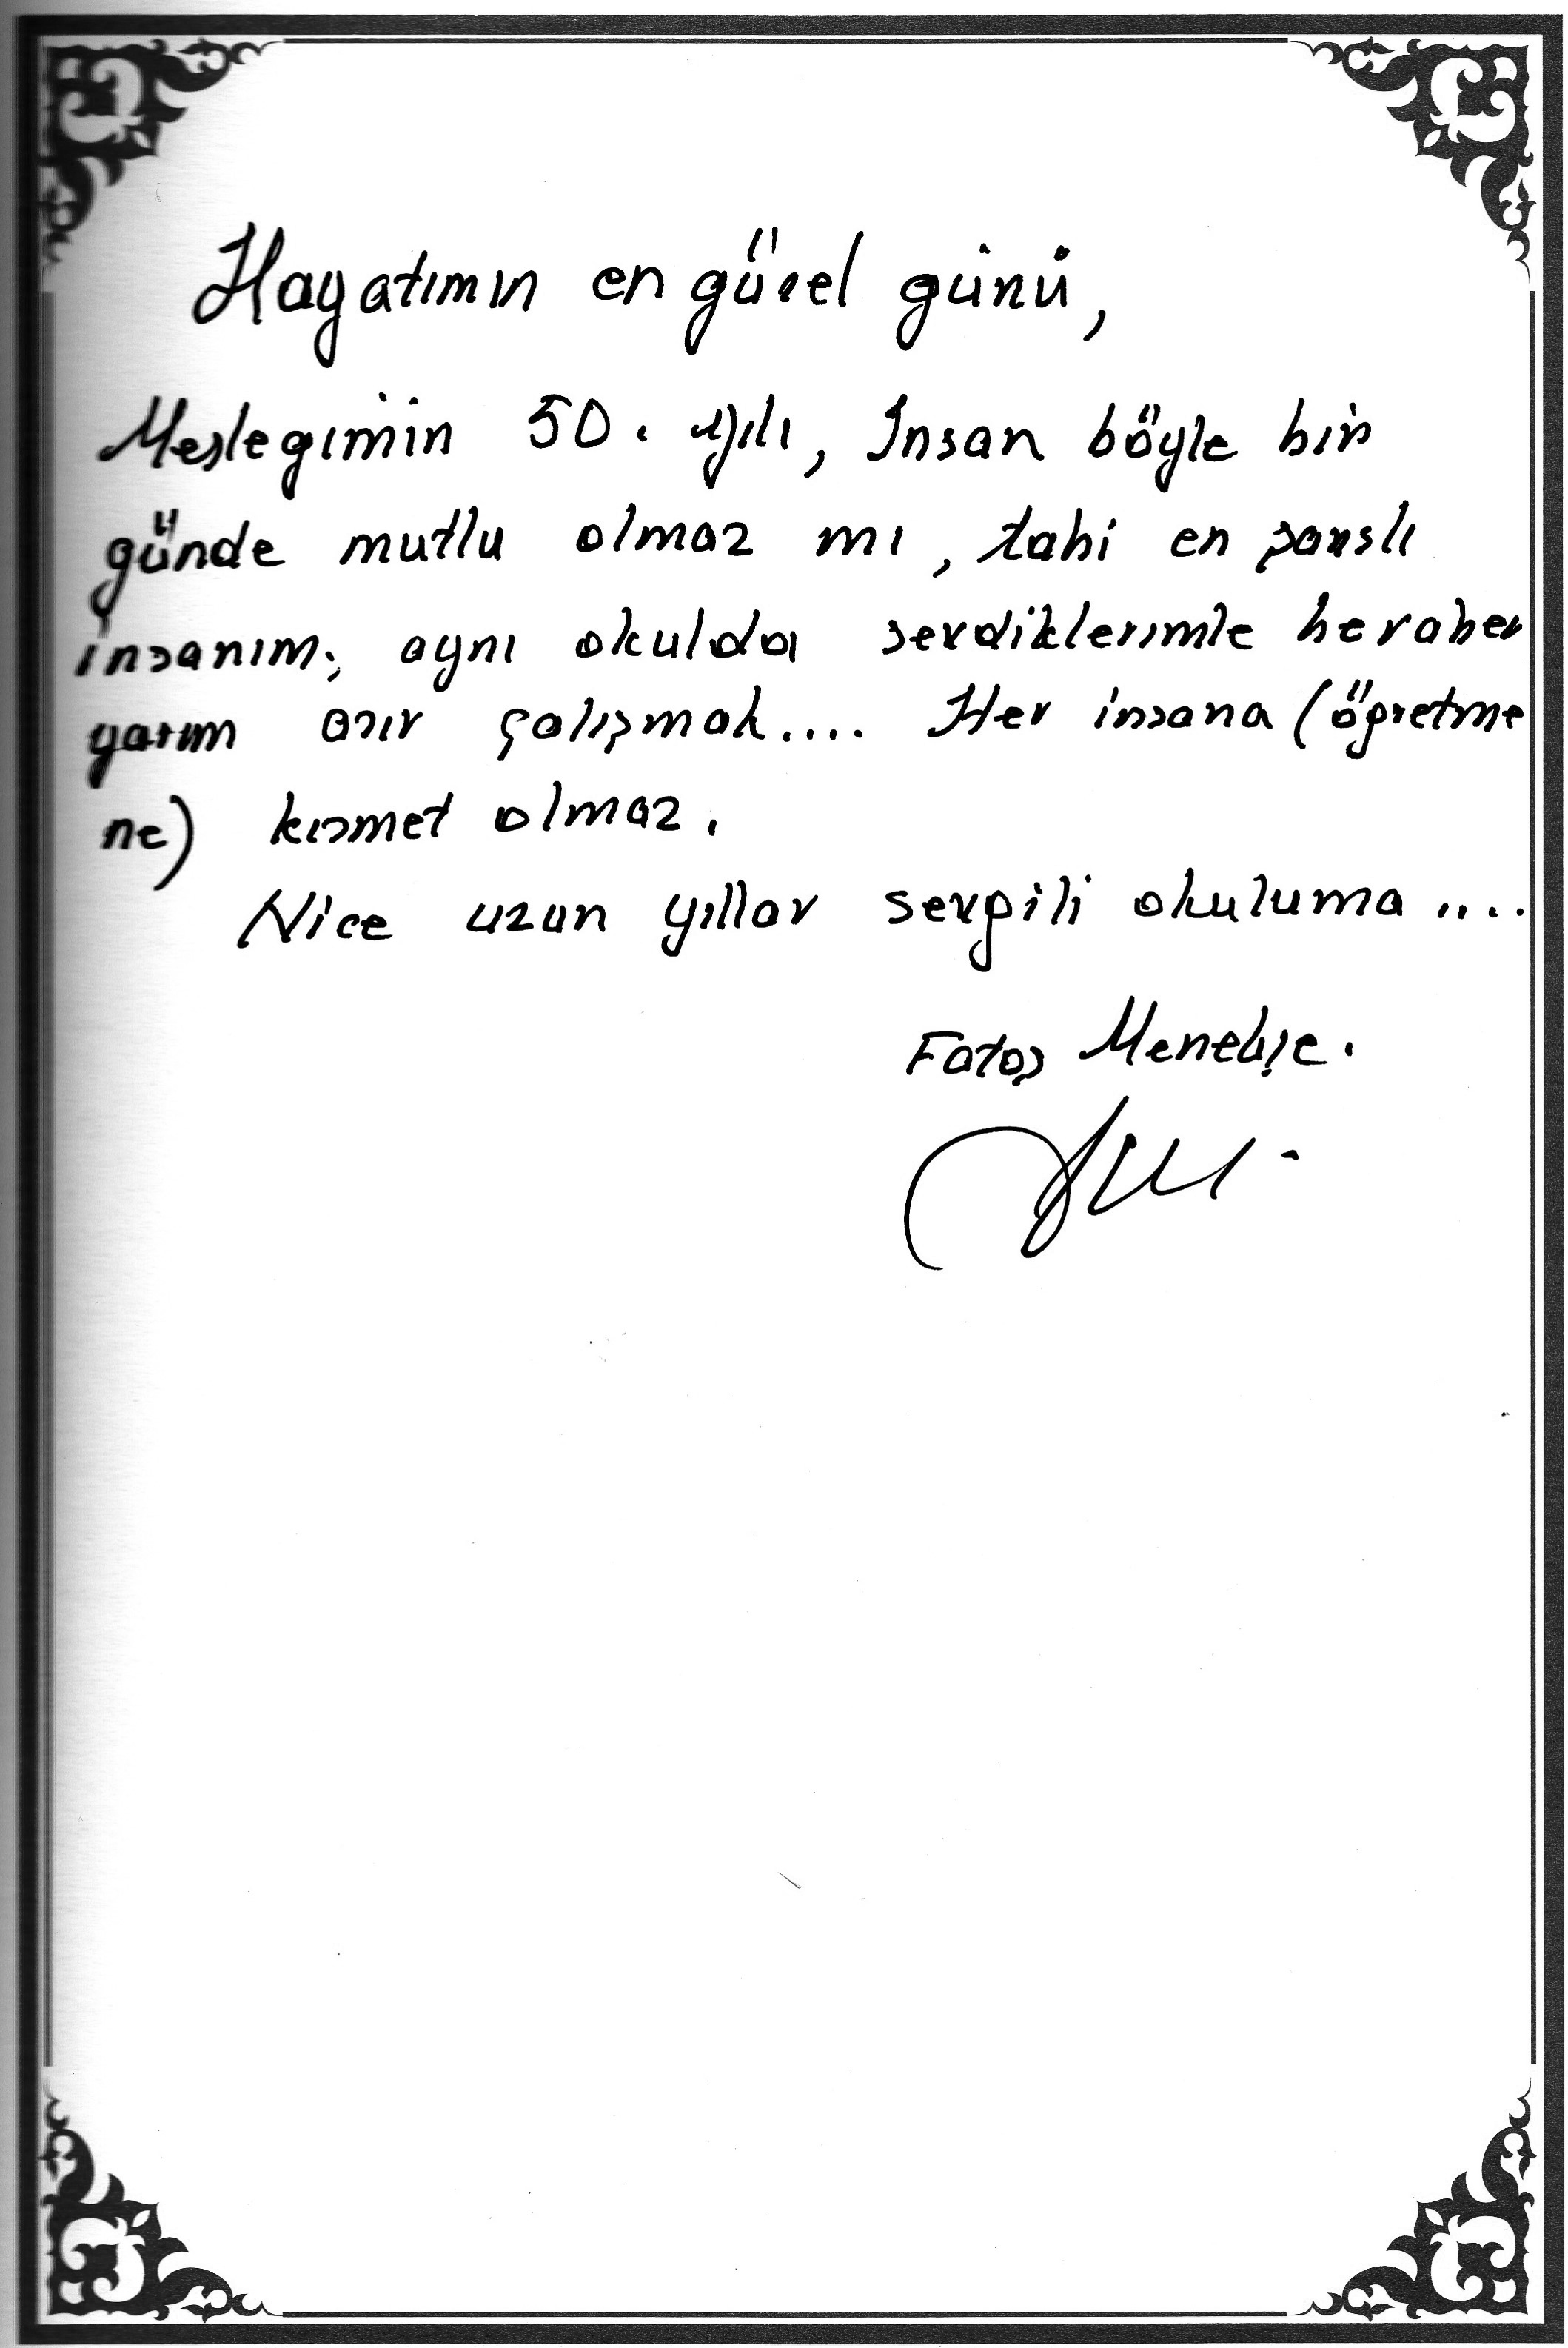 Hayatımın en güzel günü,
Meslegimin 50. yılı, İnsan böyle bir
günde mutlu olmaz mı, tabi en şanslı
insanım; aynı okulda sevdiklerimle beraber
yarım asır çalışmak.... Her insana (öğretme
ne) kısmet olmaz.
Nice uzun yıllar sevgili okuluma ....
Fatoş Menekşe.